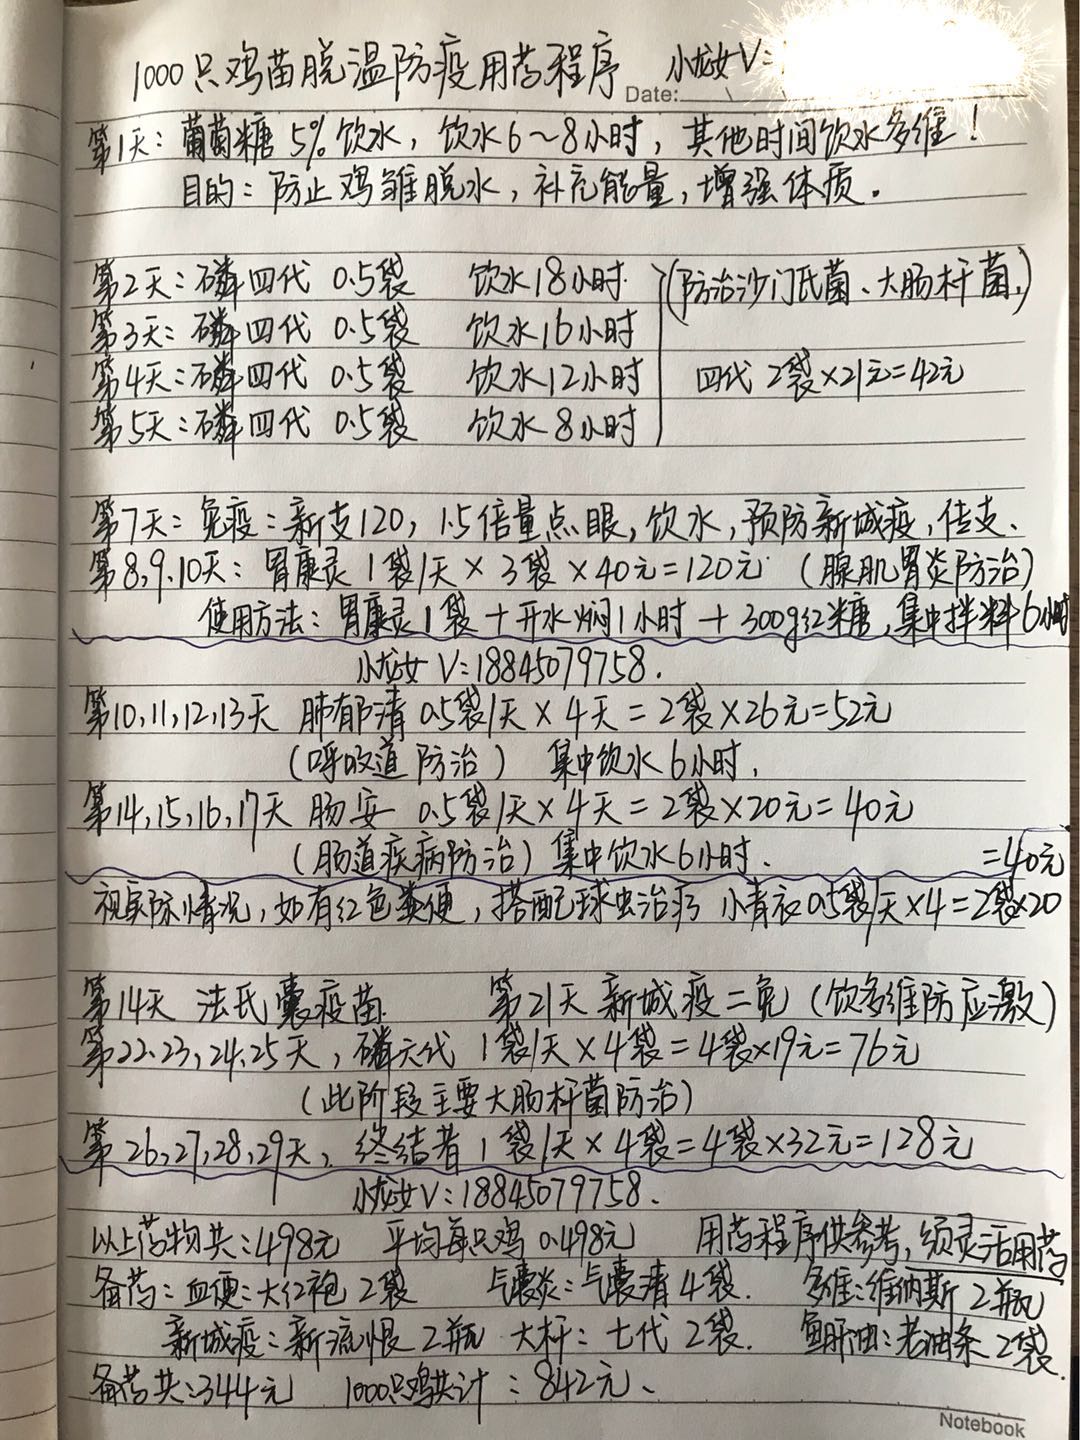 1000只鸡苗脱温防疫用药程序 小龙女V:
Date:
第1天:葡萄糖 5% 饮水,饮水6~8小时,其他时间饮水多维!
目的:防止鸡雏脱水,补充能量,增强体质。
第2天:磷四代 0.5袋 饮水18小时 (防治沙门氏菌、大肠杆菌,)
第3天:磷四代 0.5袋 饮水16小时
第4天:磷四代 0.5袋 饮水12小时 四代 2袋×21元=42元
第5天:磷四代 0.5袋 饮水8小时
第7天:免疫:新支120,1.5倍量点眼,饮水,预防新城疫,传支、
第8,9.10天:胃康灵 1袋/天×3袋×40元=120元 (腺肌胃炎防治)
使用方法:胃康灵1袋+开水焖1小时+300g红糖,集中拌料6小时
小龙女 V:18845079758.
第10,11,12,13天 肺郁清 0.5袋/天×4天=2袋×26元=52元
(呼吸道防治) 集中饮水6小时,
第14,15,16,17天 肠安 0.5袋/天×4天=2袋×20元=40元
(肠道疾病防治)集中饮水6小时. =40元
视实际情况,如有红色粪便,搭配球虫治疗 小青衣0.5袋/天×4=2袋×20
第14天 法氏囊疫苗. 第21天 新城疫二免(饮多维防应激)
第22.23,24,25天,磷六代 1袋/天×4袋=4袋×19元=76元
(此阶段主要大肠杆菌防治)
第26,27,28,29天,终结者 1袋/天×4袋=4袋×32元=128元
小龙女V:18845079758.
以上药物共:498元 平均每只鸡 0.498元 用药程序供参考,须灵活用药
备药:血便:大红袍 2袋 气囊炎:气囊清 4袋. 多维:维纳斯 2瓶
新城疫:新流恨 2瓶 大杆:七代 2袋. 鱼肝油:老油条 2袋.
备药共:344元 1000只鸡共计:842元、
Notebook